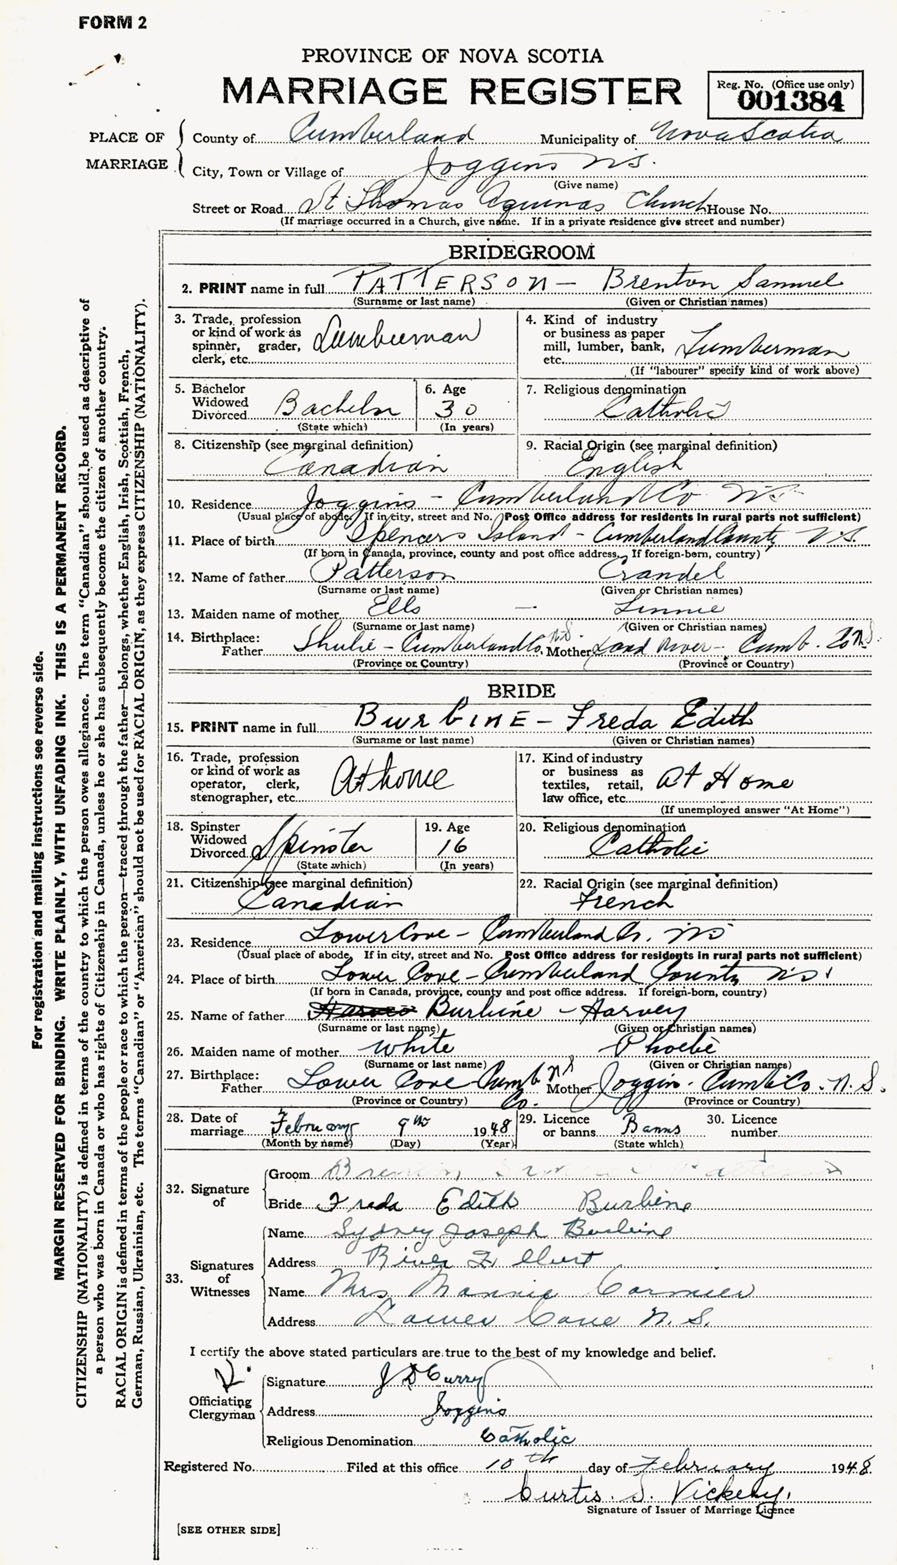 FORM 2
PROVINCE OF NOVA SCOTIA
MARRIAGE REGISTER
Reg. No. (Office use only)
001384
PLACE OF MARRIAGE
County of Cumberland Municipality of Nova Scotia
City, Town or Village of Joggins N.S.
(Give name)
Street or Road St Thomas Aquinas Church House No.
(If marriage occurred in a Church, give name. If in a private residence give street and number)
BRIDEGROOM
2. PRINT name in full PATTERSON - Brenton Samuel
(Surname or last name) (Given or Christian names)
3. Trade, profession or kind of work as spinner, grader, clerk, etc. Lumberman
4. Kind of industry or business as paper mill, lumber, bank, etc. Lumberman
(If "labourer" specify kind of work above)
5. Bachelor Widowed Divorced Bachelor
(State which)
6. Age 30
(In years)
7. Religious denomination Catholic
8. Citizenship (see marginal definition) Canadian
9. Racial Origin (see marginal definition) English
10. Residence Joggins - Cumberland Co N.S.
(Usual place of abode. If in city, street and No. Post Office address for residents in rural parts not sufficient)
11. Place of birth Spencers Island - Cumberland County N.S.
(If born in Canada, province, county and post office address. If foreign-born, country)
12. Name of father Patterson Crandel
(Surname or last name) (Given or Christian names)
13. Maiden name of mother Ells - Linnie
(Surname or last name) (Given or Christian names)
14. Birthplace: Father Shulie - Cumberland Co. N.S. Mother Sand River - Cumb. Co N.S.
(Province or Country) (Province or Country)
BRIDE
15. PRINT name in full BURBINE - Freda Edith
(Surname or last name) (Given or Christian names)
16. Trade, profession or kind of work as operator, clerk, stenographer, etc. At home
17. Kind of industry or business as textiles, retail, law office, etc. At Home
(If unemployed answer "At Home")
18. Spinster Widowed Divorced Spinster
(State which)
19. Age 16
(In years)
20. Religious denomination Catholic
21. Citizenship (see marginal definition) Canadian
22. Racial Origin (see marginal definition) French
23. Residence Lower Cove - Cumberland Co. N.S
(Usual place of abode. If in city, street and No. Post Office address for residents in rural parts not sufficient)
24. Place of birth Lower Cove - Cumberland County N.S.
(If born in Canada, province, county and post office address. If foreign-born, country)
25. Name of father Burbine - Harvey
(Surname or last name) (Given or Christian names)
26. Maiden name of mother White Phoebe
(Surname or last name) (Given or Christian names)
27. Birthplace: Father Lower Cove - Cumb. Co. N.S Mother Joggins - Cumb. Co. N.S.
(Province or Country) (Province or Country)
28. Date of marriage February 9th 1948
(Month by name) (Day) (Year)
29. Licence or banns Banns
(State which)
30. Licence number
32. Signature of
Groom Brenton
Bride Freda Edith Burbine
33. Signatures of Witnesses
Name Sydney Joseph Burbine
Address River Hebert
Name Mrs Mannie Cormier
Address Lower Cove N.S.
I certify the above stated particulars are true to the best of my knowledge and belief.
Officiating Clergyman
Signature J D Curry
Address Joggins
Religious Denomination Catholic
Registered No. Filed at this office 10th day of February 1948.
Curtis. S. Vickery.
Signature of Issuer of Marriage Licence
[SEE OTHER SIDE]
For registration and mailing instructions see reverse side.
MARGIN RESERVED FOR BINDING. WRITE PLAINLY, WITH UNFADING INK. THIS IS A PERMANENT RECORD.
CITIZENSHIP (NATIONALITY) is defined in terms of the country to which the person owes allegiance. The term "Canadian" should be used as descriptive of
a person who was born in Canada or who has rights of Citizenship in Canada, unless he or she has subsequently become the citizen of another country.
RACIAL ORIGIN is defined in terms of the people or race to which the person—traced through the father—belongs, whether English, Irish, Scottish, French,
German, Russian, Ukrainian, etc. The terms "Canadian" or "American" should not be used for RACIAL ORIGIN, as they express CITIZENSHIP (NATIONALITY).